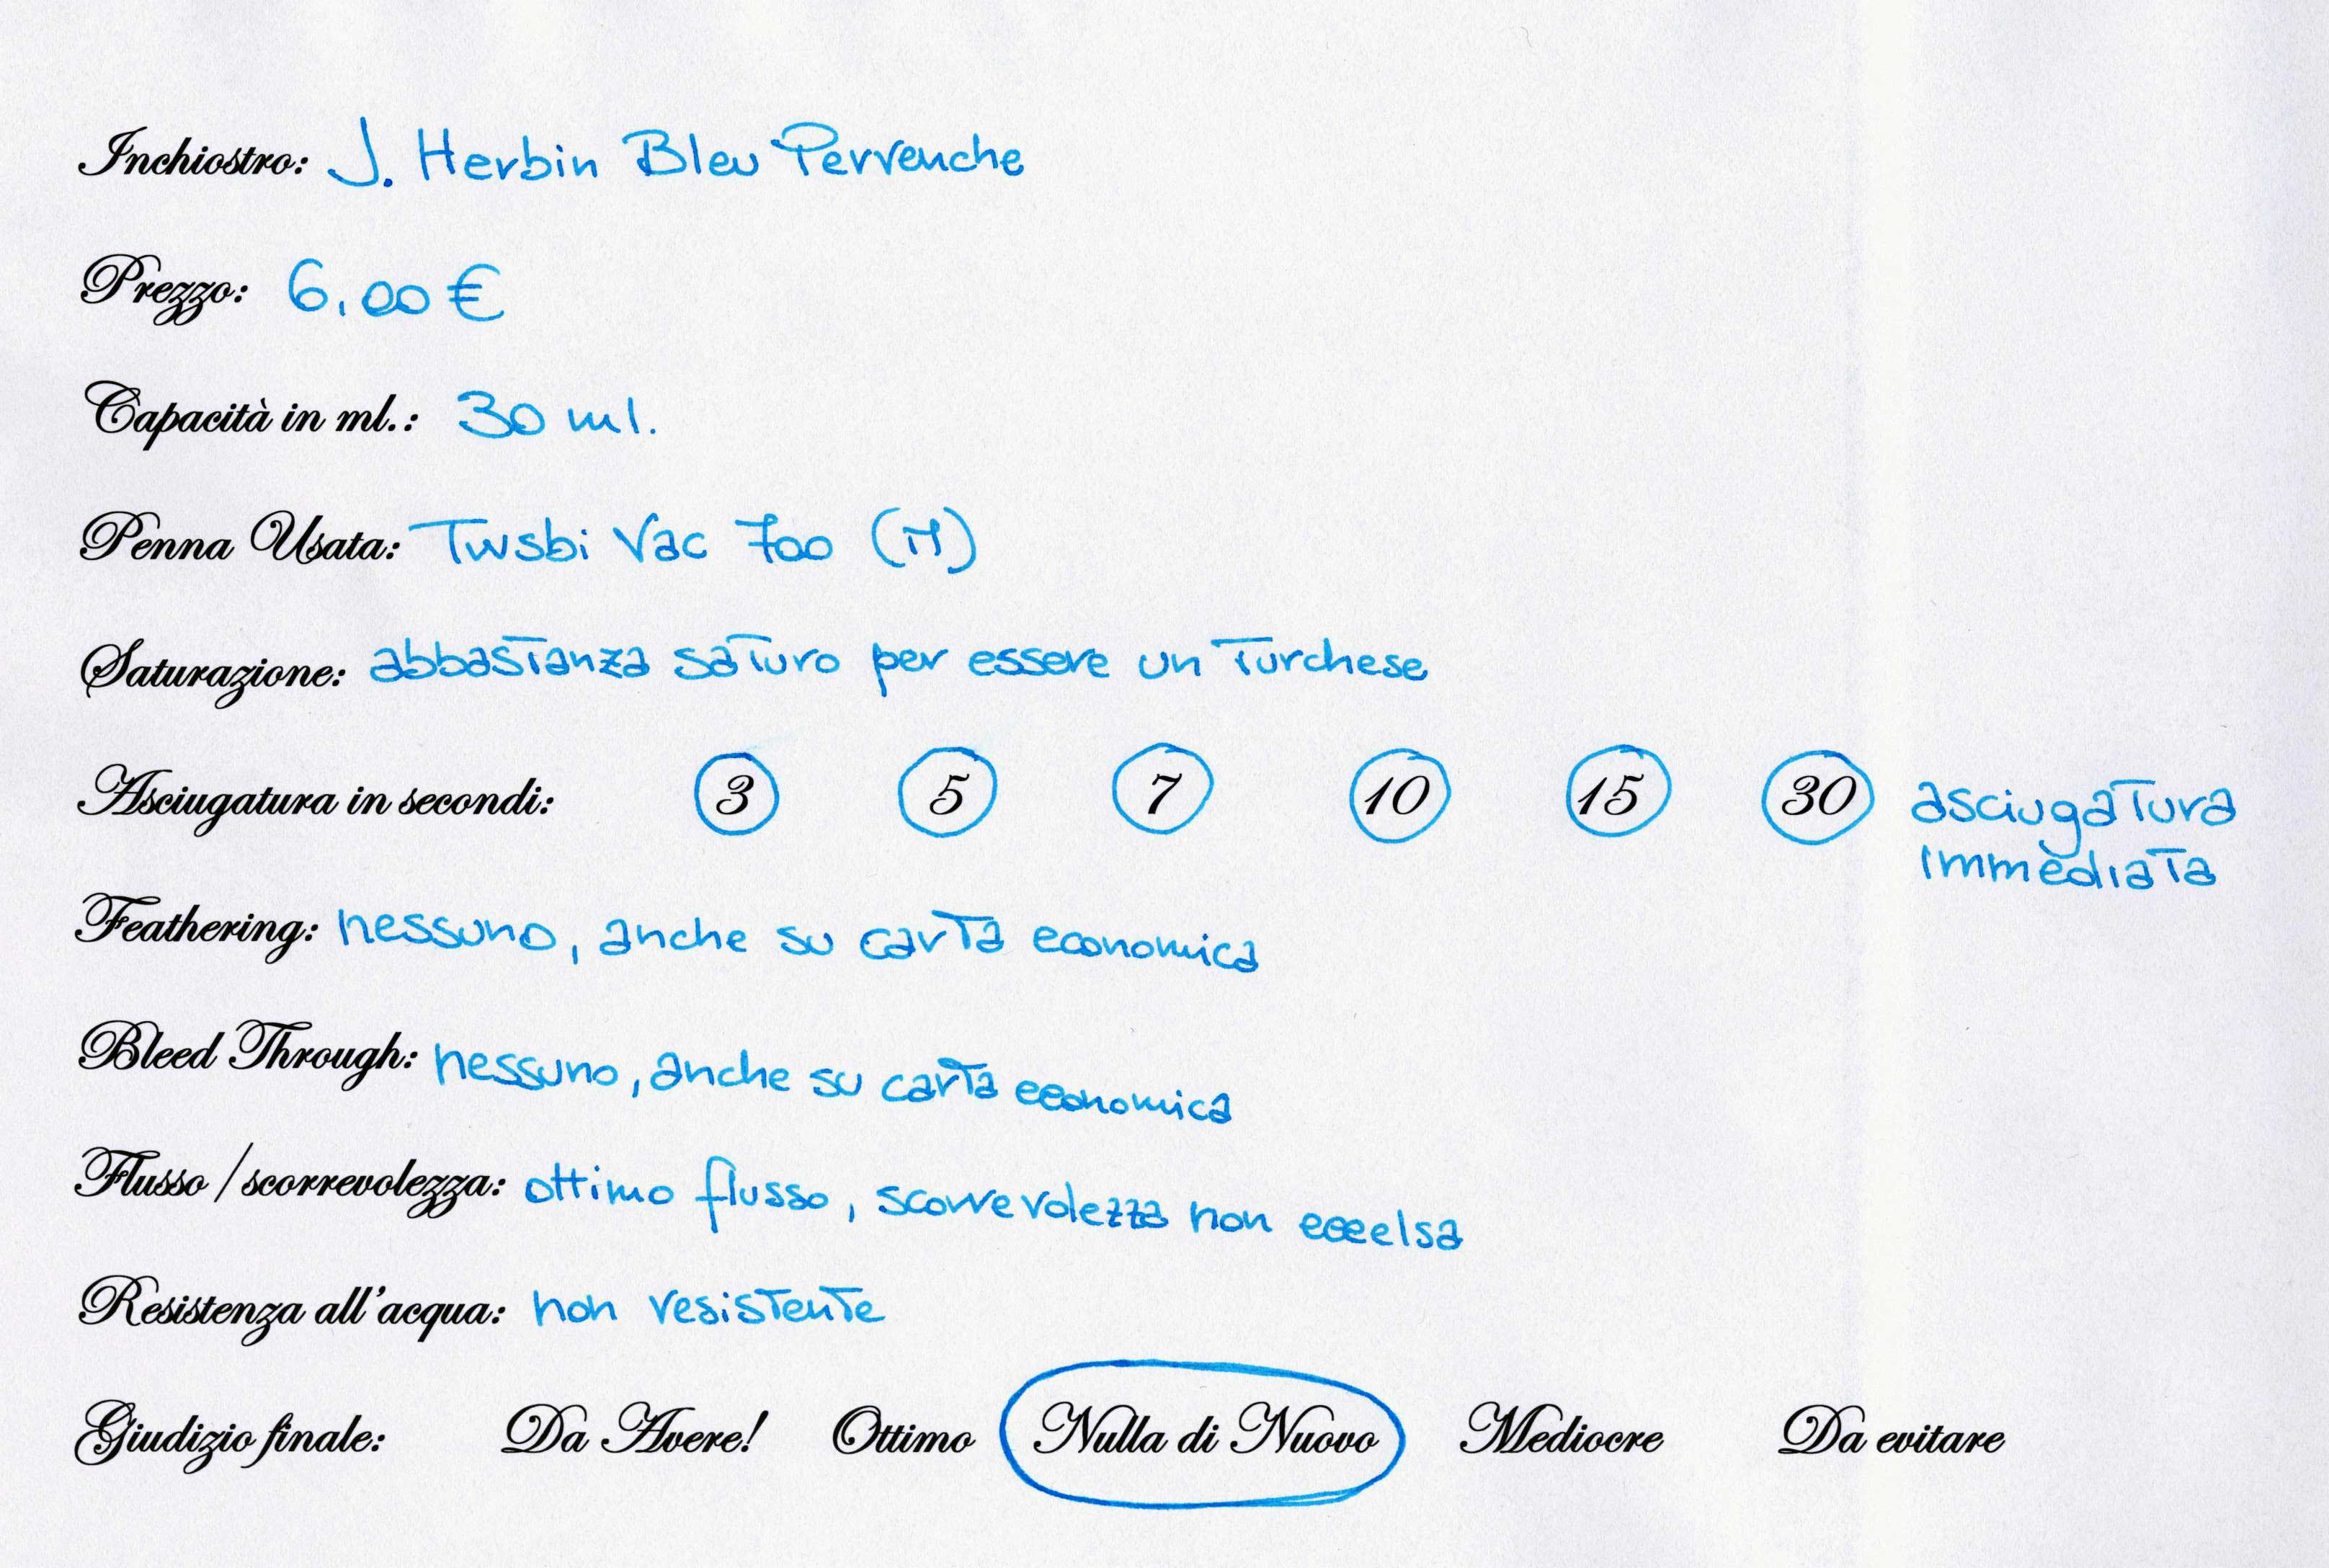 Inchiostro: J. Herbin Bleu Pervenche
Prezzo: 6,00 €
Capacità in ml.: 30 ml.
Penna Usata: Twsbi Vac 700 (M)
Saturazione: abbastanza saturo per essere un turchese
Asciugatura in secondi: 3 5 7 10 15 30 asciugatura
immediata
Feathering: nessuno, anche su carta economica
Bleed Through: nessuno, anche su carta economica
Flusso / scorrevolezza: ottimo flusso, scorrevolezza non eccelsa
Resistenza all'acqua: non resistente
Giudizio finale: Da Avere! Ottimo Nulla di Nuovo Mediocre Da evitare